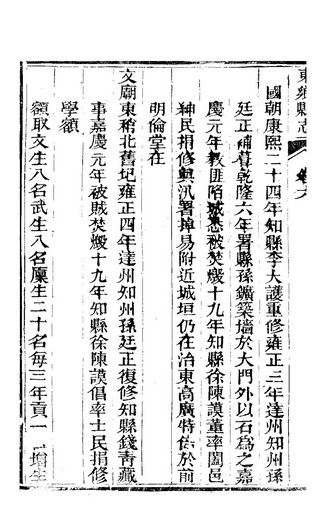 東鄉縣志
卷六
國朝康熙二十四年知縣李大護重修雍正三年達州知州孫
廷正補葺乾隆六年署縣孫鑛築墻於大門外以石為之嘉
慶元年教匪陷城悉被焚燬十九年知縣徐陳謨董率闔邑
紳民捐修與汛署掉易附近城垣仍在治東高廣特倍於前
明倫堂在
文廟東稍北舊圮雍正四年達州知州孫廷正復修知縣錢青藏
事嘉慶元年被賊焚燬十九年知縣徐陳謨倡率士民捐修
學額
額取文生八名武生八名廩生二十名每三年貢一 增生